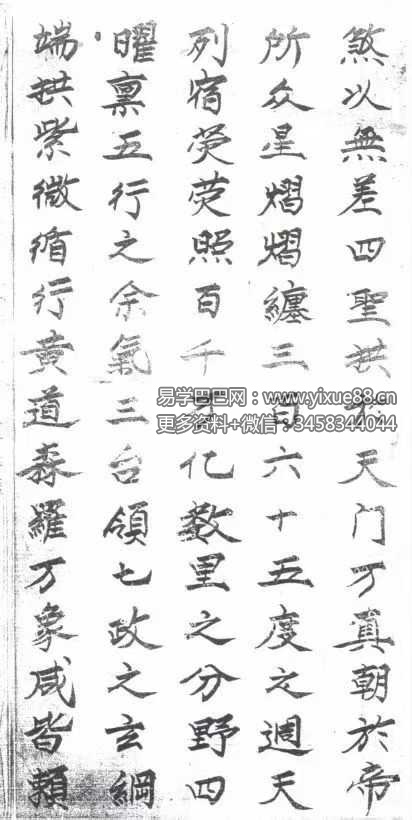 煞以無差四聖拱於天门万真朝於帝
所众星熠熠纏三百六十五度之週天
列宿荧荧照百千亿数里之分野四
曜禀五行之余氣三台領七政之玄綱
端拱紫微循行黄道森羅万象咸皆頼
易学巴巴网：www.yixue88.cn
更多资料+微信：3458344044